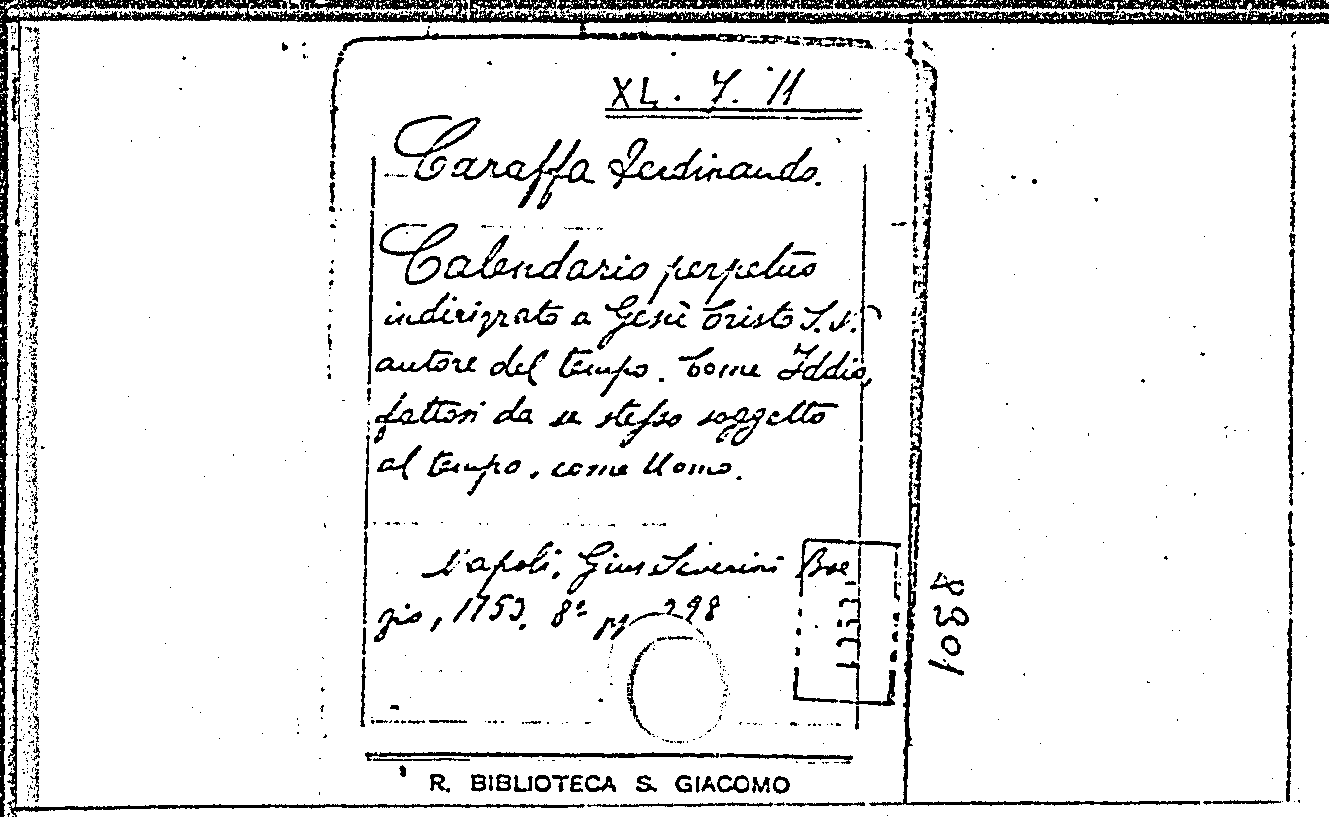 XL. 7. 11
Caraffa Ferdinando.
Calendario perpetuo
indirizzato a Gesù Cristo S. N.
autore del tempo. Come Iddio,
fattosi da se stesso soggetto
al tempo, come Uomo.
Napoli, Gius Severini Boe
zio, 1753. 8º pp 298
R. BIBLIOTECA S. GIACOMO